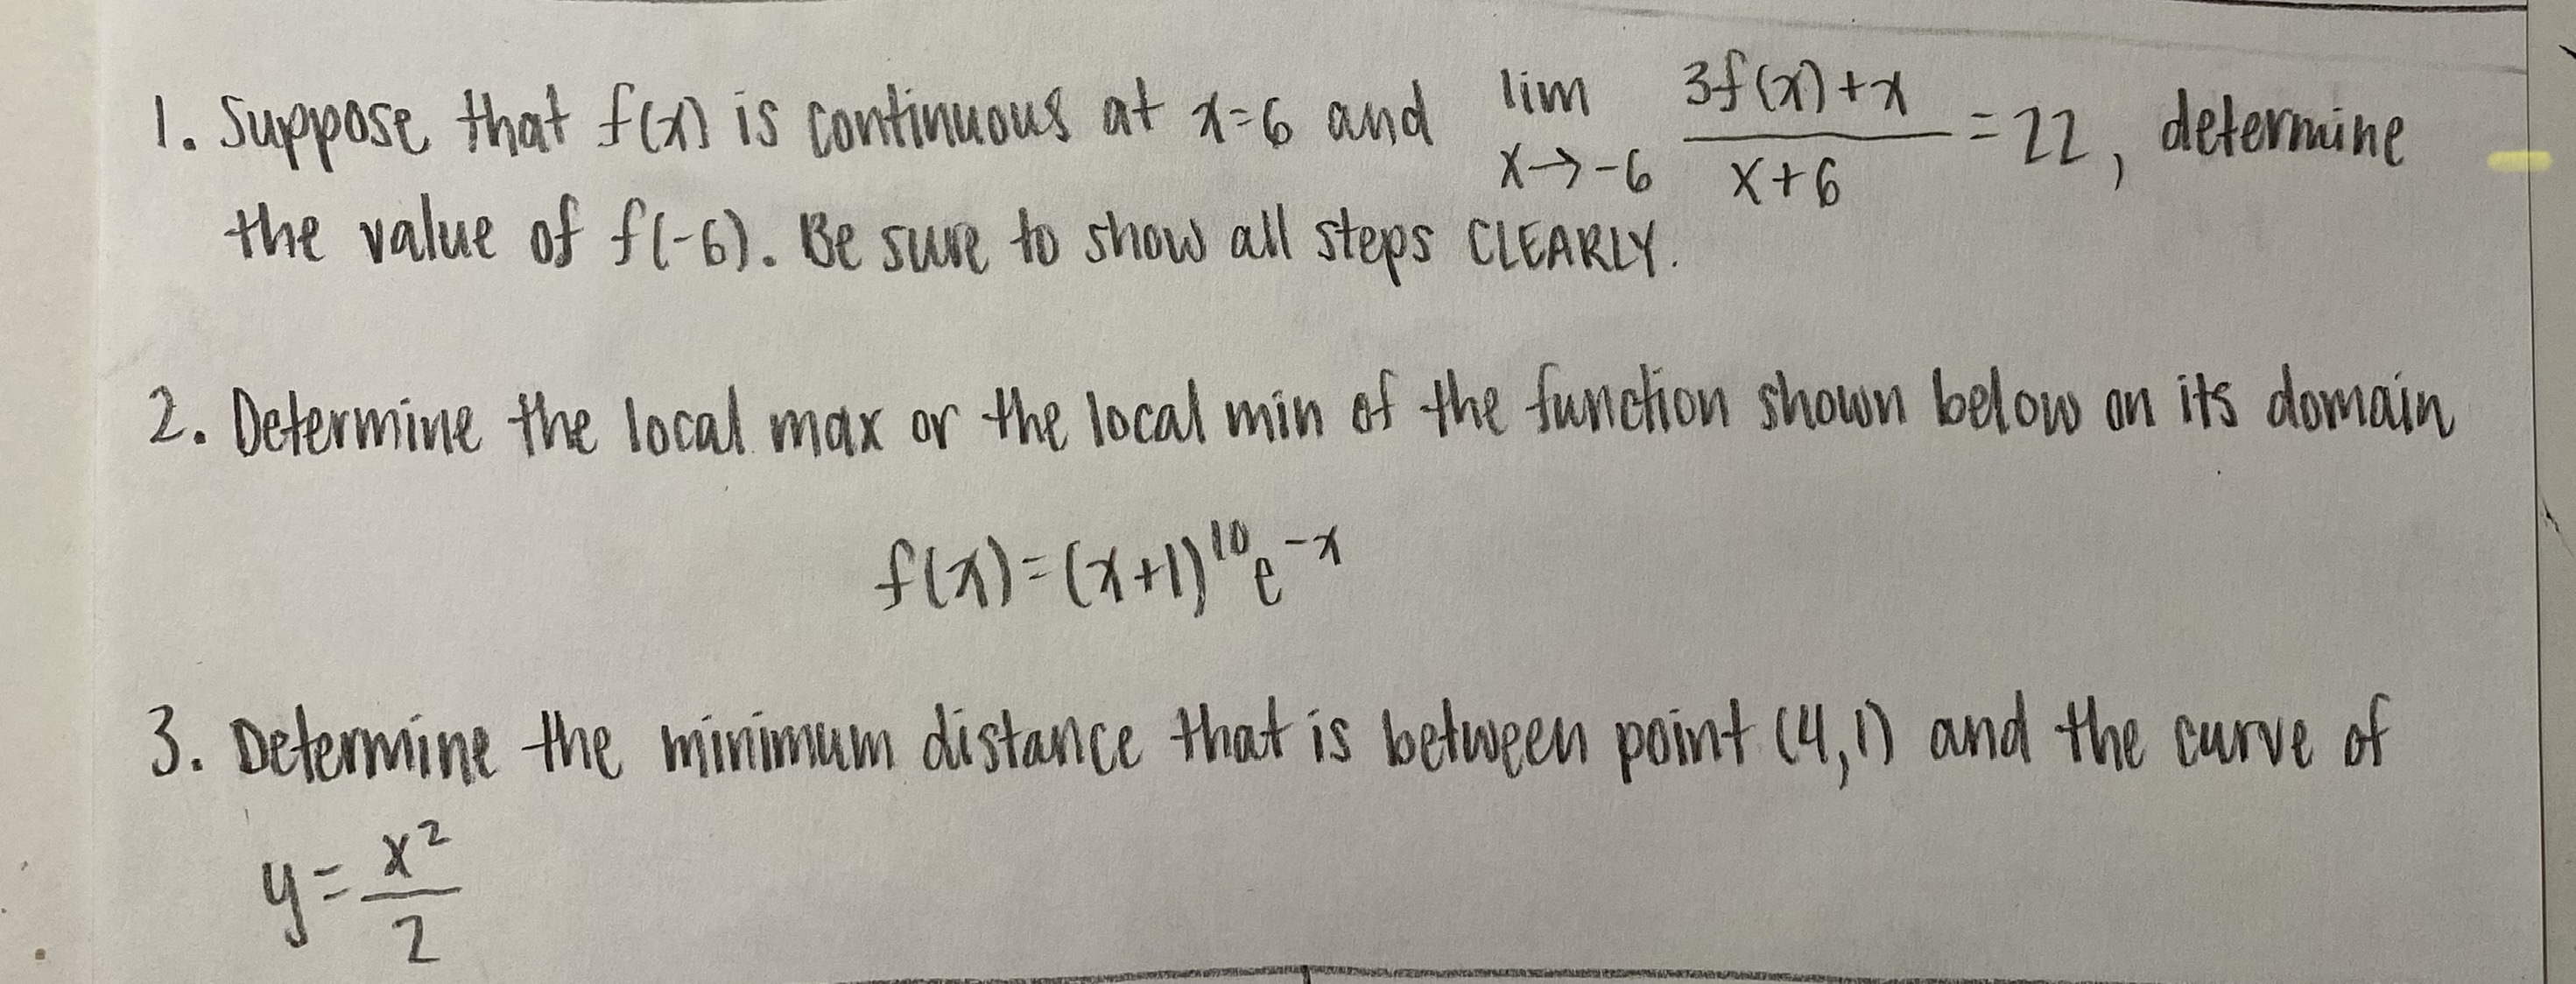 1. Suppose that f(x) is continuous at x=6 and lim x→-6 (3f(x)+x)/(x+6) = 22, determine
the value of f(-6). Be sure to show all steps CLEARLY.
2. Determine the local max or the local min of the function shown below on its domain
f(x)=(x+1)^10 e^-x
3. Determine the minimum distance that is between point (4,1) and the curve of
y = x²/2